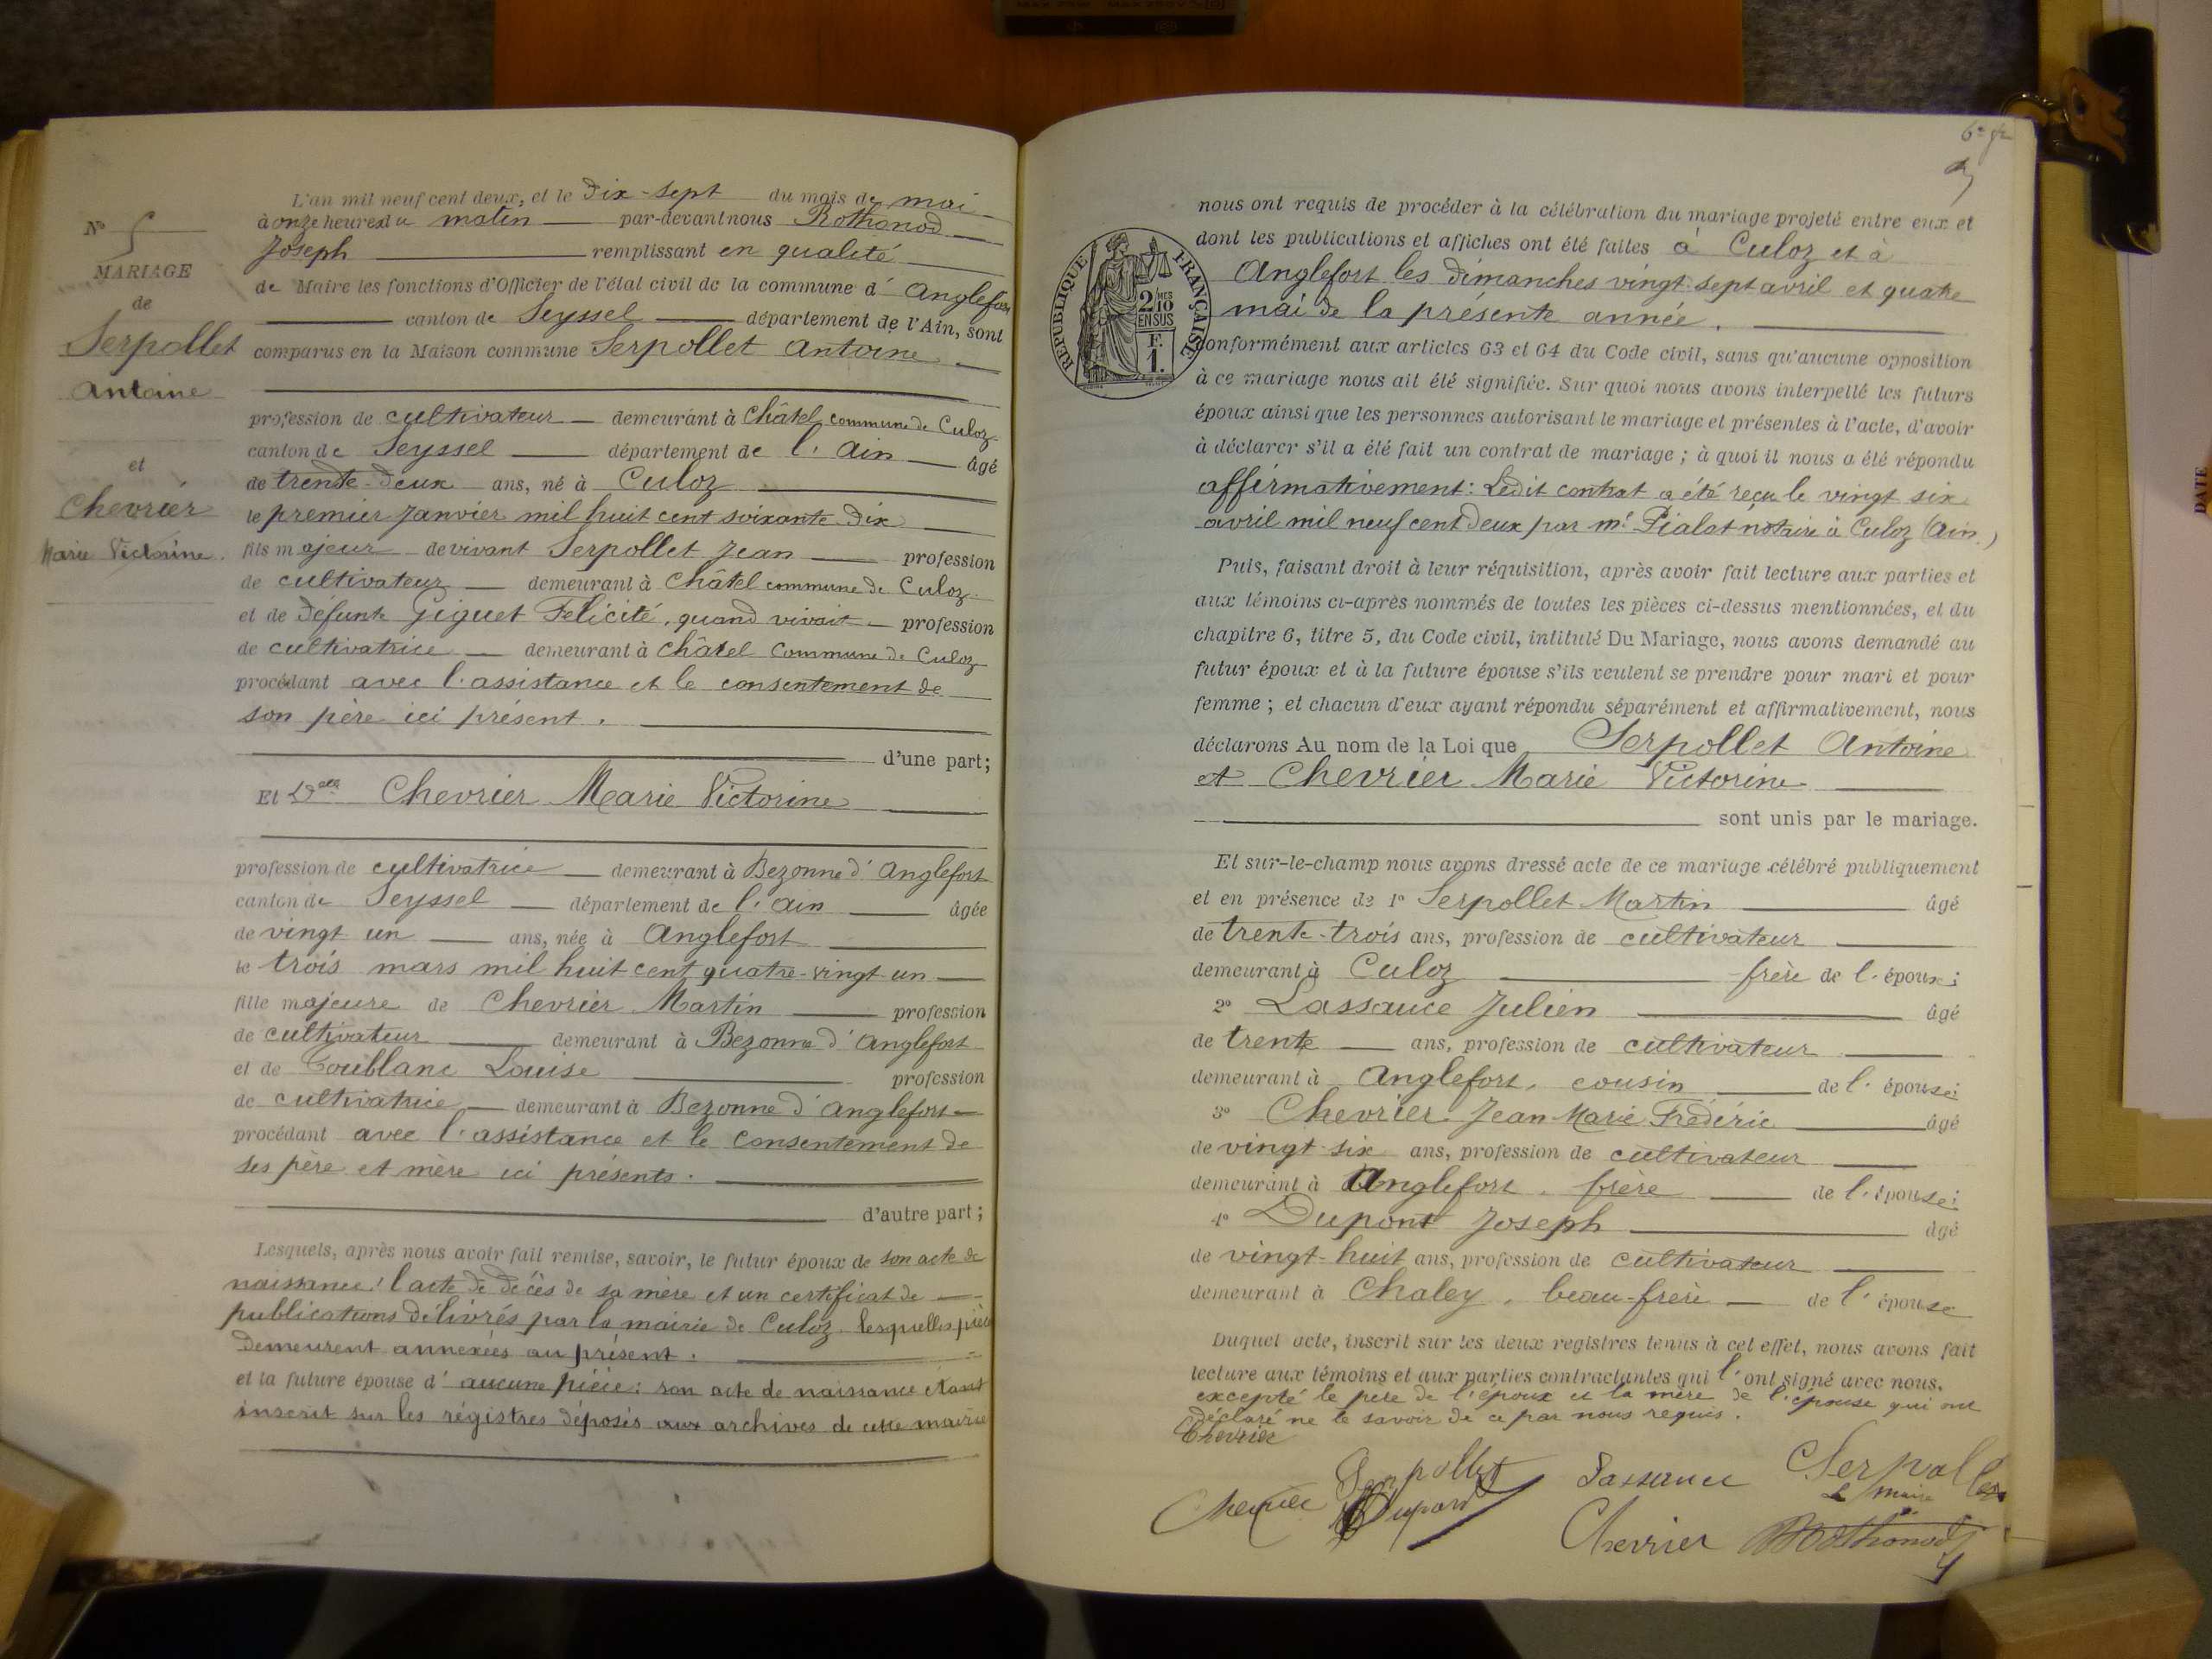 N° 5
MARIAGE
de
Serpollet
Antoine
et
Chevrier
Marie Victorine.
L'an mil neuf cent deux, et le dix-sept du mois de mai
à onze heures du matin par-devant nous Rothonod
Joseph remplissant en qualité
de Maire les fonctions d'Officier de l'état civil de la commune d'Anglefort
canton de Seyssel département de l'Ain, sont
comparus en la Maison commune Serpollet Antoine
profession de cultivateur demeurant à Châtel commune de Culoz
canton de Seyssel département de l'Ain âgé
de trente-deux ans, né à Culoz
le premier Janvier mil huit cent soixante dix
fils majeur de vivant Serpollet Jean profession
de cultivateur demeurant à Châtel commune de Culoz
et de défunte Giguet Félicité, quand vivait profession
de cultivatrice demeurant à châtel Commune de Culoz
procédant avec l'assistance et le consentement de
son père ici présent.
d'une part;
Et Delle Chevrier Marie Victorine
profession de cultivatrice demeurant à Bezonne d'Anglefort
canton de Seyssel département de l'Ain âgée
de vingt un ans, née à Anglefort
le trois mars mil huit cent quatre-vingt un
fille majeure de Chevrier Martin profession
de cultivateur demeurant à Bezonne d'Anglefort
et de Toublanc Louise profession
de cultivatrice demeurant à Bezonne d'Anglefort
procédant avec l'assistance et le consentement de
ses père et mère ici présents.
d'autre part;
Lesquels, après nous avoir fait remise, savoir, le futur époux de son acte de
naissance, l'acte de décès de sa mère et un certificat de
publications délivrés par la mairie de Culoz lesquelles pièces
demeurent annexées au présent.
et la future épouse d'aucune pièce: son acte de naissance étant
inscrit sur les régistres déposés aux archives de cette mairie
nous ont requis de procéder à la célébration du mariage projeté entre eux et
dont les publications et affiches ont été faites à Culoz et à
Anglefort les dimanches vingt-sept avril et quatre
mai de la présente année.
RÉPUBLIQUE FRANÇAISE
2/10 MES
EN SUS
F.
1.
conformément aux articles 63 et 64 du Code civil, sans qu'aucune opposition
à ce mariage nous ait été signifiée. Sur quoi nous avons interpellé les futurs
époux ainsi que les personnes autorisant le mariage et présentes à l'acte, d'avoir
à déclarer s'il a été fait un contrat de mariage; à quoi il nous a été répondu
affirmativement: Ledit contrat a été reçu le vingt six
avril mil neuf cent deux par me Pialat notaire à Culoz (Ain.)
Puis, faisant droit à leur réquisition, après avoir fait lecture aux parties et
aux témoins ci-après nommés de toutes les pièces ci-dessus mentionnées, et du
chapitre 6, titre 5, du Code civil, intitulé Du Mariage, nous avons demandé au
futur époux et à la future épouse s'ils veulent se prendre pour mari et pour
femme; et chacun d'eux ayant répondu séparément et affirmativement, nous
déclarons Au nom de la Loi que Serpollet Antoine
et Chevrier Marie Victorine
sont unis par le mariage.
Et sur-le-champ nous avons dressé acte de ce mariage célébré publiquement
et en présence de 1° Serpollet Martin âgé
de trente-trois ans, profession de cultivateur
demeurant à Culoz frère de l'époux;
2° Lassauce Julien âgé
de trente ans, profession de cultivateur
demeurant à Anglefort, cousin de l'épouse;
3° Chevrier Jean-Marie Frédéric âgé
de vingt-six ans, profession de cultivateur
demeurant à Anglefort, frère de l'épouse;
4° Dupont Joseph âgé
de vingt-huit ans, profession de cultivateur
demeurant à Chaley, beau-frère de l'épouse
Duquel acte, inscrit sur les deux registres tenus à cet effet, nous avons fait
lecture aux témoins et aux parties contractantes qui l'ont signé avec nous.
excepté le père de l'époux et la mère de l'épouse qui ont
déclaré ne le savoir de ce par nous requis.
Chevrier
Serpollet Lassauce Serpollet
Chevrier Dupont Le Maire
Chevrier Rothonod
DATE